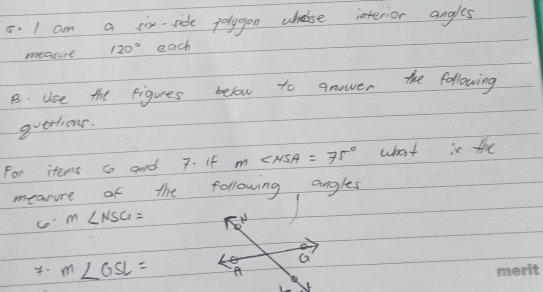 5. I am a six-side polygon whose interior angles
measure 120° each
B. Use the figures below to answer the following
questions.
For items 6 and 7. if m <NSA = 75° what is the
measure of the following angles
6. m ∠NSG =
N
G
A
7. m ∠GSL =
L
merit